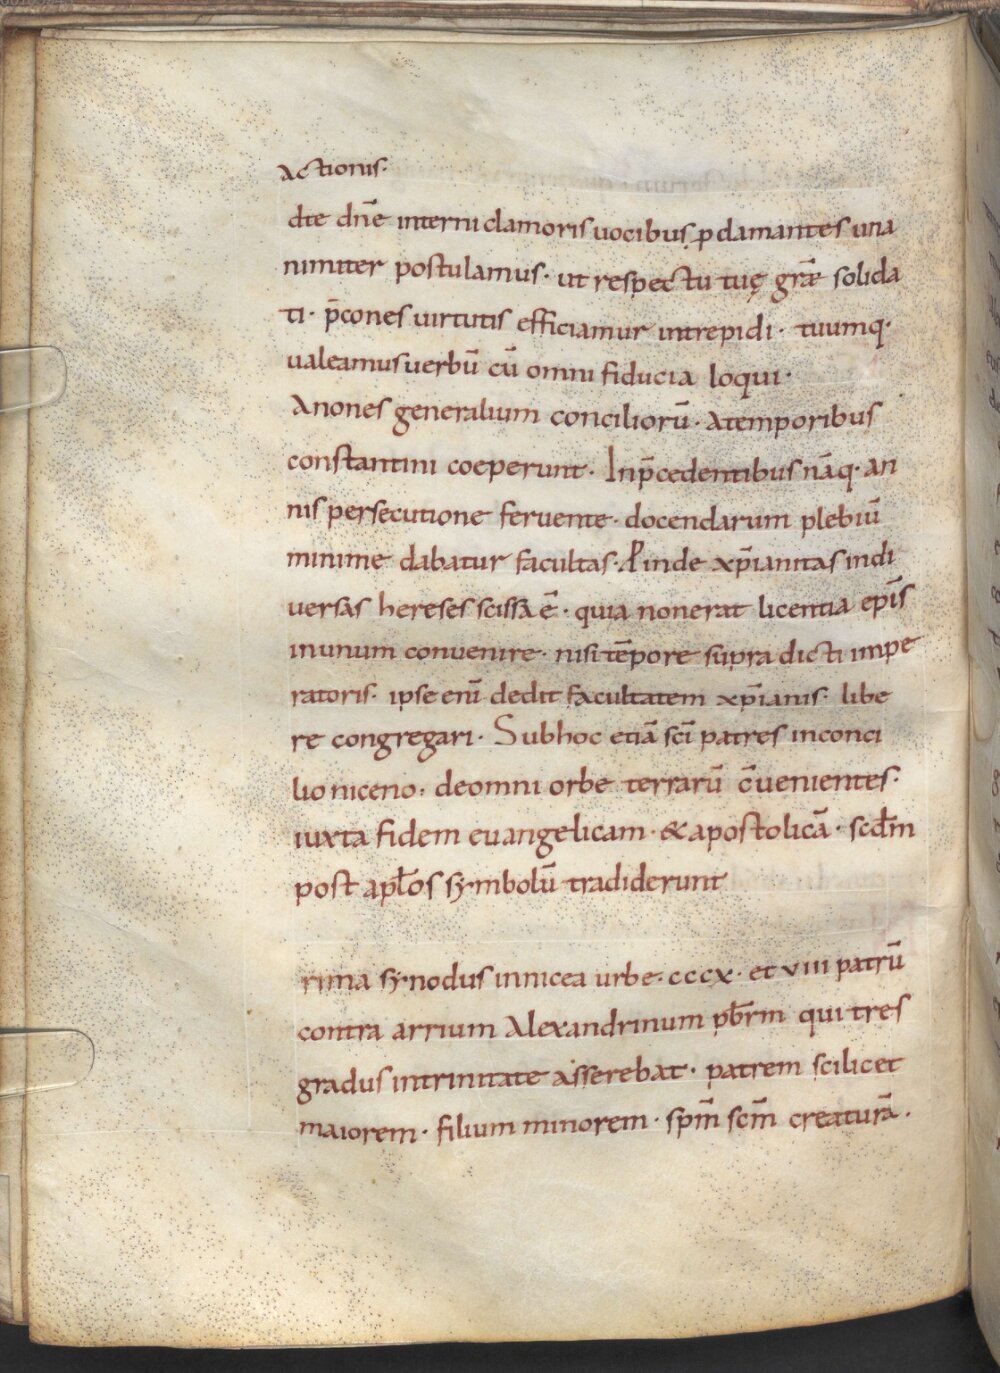 actionis·
dte dn̄e interni clamoris uocibus p̱ clamantes una
nimiter postulamus· ut respectu tuę gr̄ae solida
ti· p̄cones uirtutis efficiamur intrepidi· tuumq·
ualeamus uerbū cū omni fiducia loqui·
Anones generalium conciliorū· a temporibus
constantini coeperunt· In p̄cedentibus nāq· an
nis persecutione feruente· docendarum plebiū
minime dabatur facultas· P inde xp̄ianitas in di
uersas hereses scissa ē· quia non erat licentia ep̄is
in unum conuenire· nisi tēpore supra dicti impe
ratoris· ipse enī dedit facultatem xp̄ianis· libe
re congregari· Sub hoc etiā sc̄i patres in conci
lio niceno· de omni orbe terrarū c̄uenientes·
iuxta fidem euangelicam· & apostolicā· scd̄m
post apl̄os symbolū tradiderunt
rima synodus in nicea urbe· cccx· et viii patrū
contra arrium Alexandrinum pb̄rm qui tres
gradus in trinitate asserebat· patrem scilicet
maiorem· filium minorem· sp̄m sc̄m creaturā·